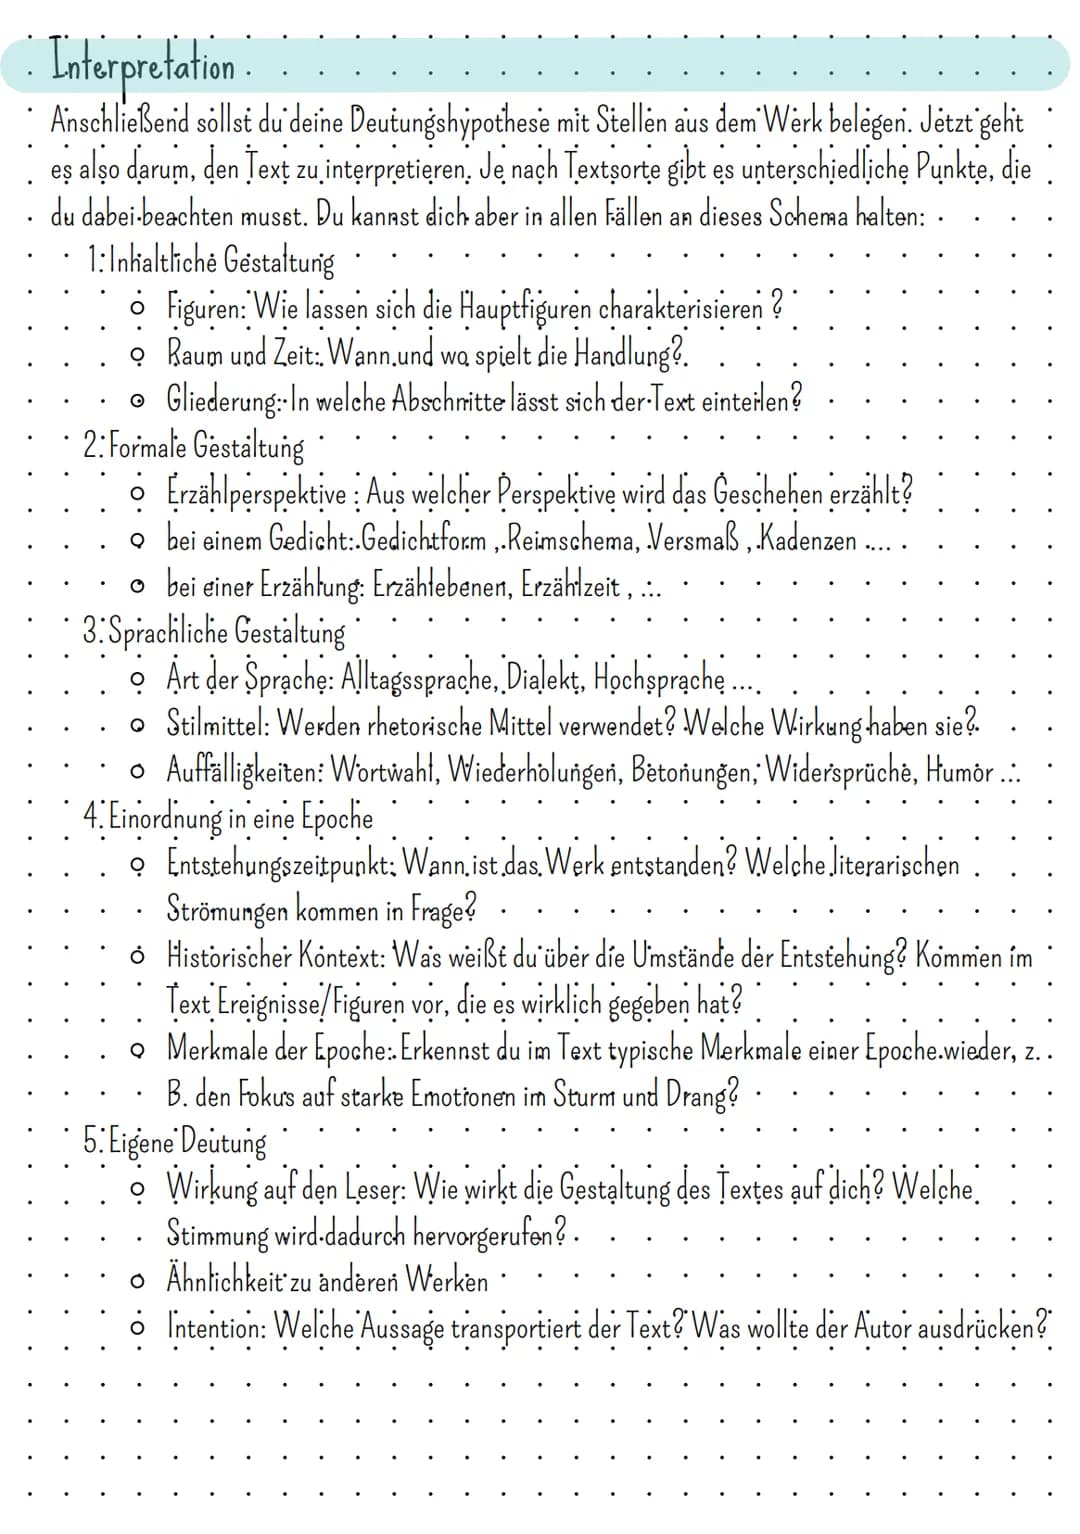 Interpretation
Anschließend sollst du deine Deutungshypothese mit Stellen aus dem Werk belegen. Jetzt geht
es also darum, den Text zu interpretieren. Je nach Textsorte gibt es unterschiedliche Punkte, die
du dabei beachten musst. Du kannst dich aber in allen Fällen an dieses Schema halten:
1. Inhaltliche Gestaltung
Figuren: Wie lassen sich die Hauptfiguren charakterisieren ?
Raum und Zeit: Wann und wo spielt die Handlung?
Gliederung: In welche Abschnitte lässt sich der Text einteilen?
2. Formale Gestaltung
Erzählperspektive : Aus welcher Perspektive wird das Geschehen erzählt?
bei einem Gedicht: Gedichtform , Reimschema, Versmaß , Kadenzen ...
bei einer Erzählung: Erzählebenen, Erzählzeit , ...
3. Sprachliche Gestaltung
Art der Sprache: Alltagssprache, Dialekt, Hochsprache ...
Stilmittel: Werden rhetorische Mittel verwendet? Welche Wirkung haben sie?
Auffälligkeiten: Wortwahl, Wiederholungen, Betonungen, Widersprüche, Humor ...
4. Einordnung in eine Epoche
Entstehungszeitpunkt: Wann ist das Werk entstanden? Welche literarischen
Strömungen kommen in Frage?
Historischer Kontext: Was weißt du über die Umstände der Entstehung? Kommen im
Text Ereignisse/Figuren vor, die es wirklich gegeben hat?
Merkmale der Epoche: Erkennst du im Text typische Merkmale einer Epoche wieder, z.
B. den Fokus auf starke Emotionen im Sturm und Drang?
5. Eigene Deutung
Wirkung auf den Leser: Wie wirkt die Gestaltung des Textes auf dich? Welche
Stimmung wird dadurch hervorgerufen?
Ähnlichkeit zu anderen Werken
Intention: Welche Aussage transportiert der Text? Was wollte der Autor ausdrücken?